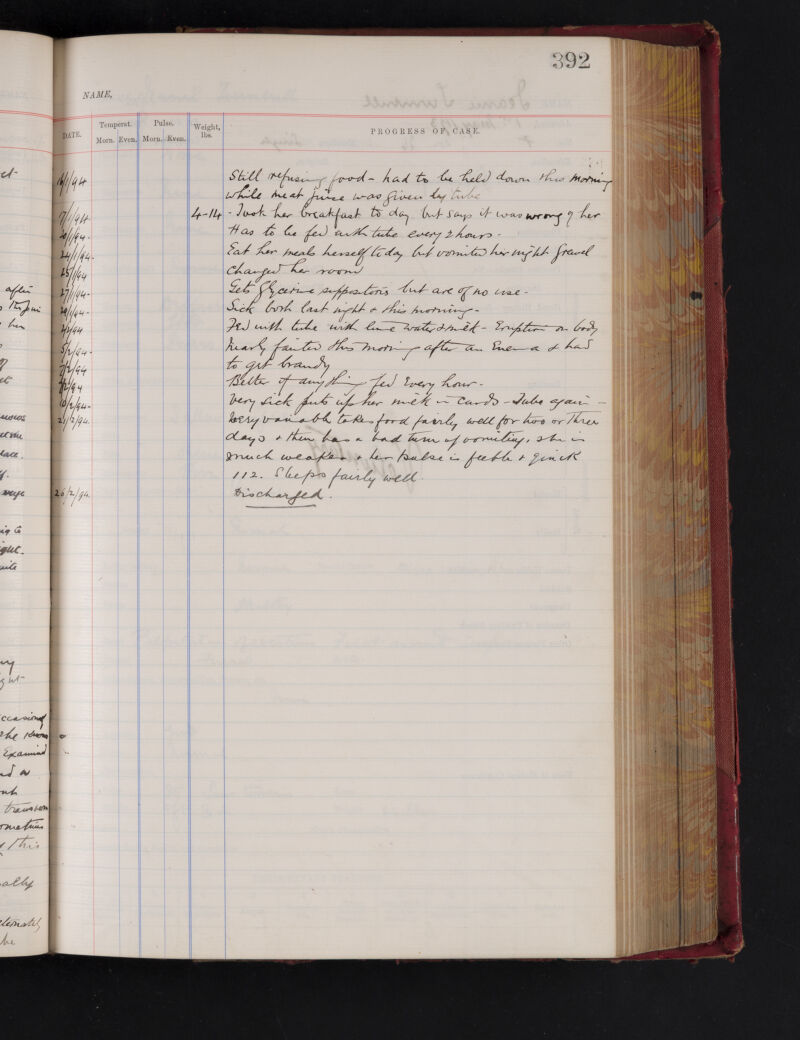 392
NAME,
DATE. Temperat. Morn. Even. Pulse. Morn. Even. Weight, lbs. PROGRESS OF CASE.
/1/94 Still refusing food - had to be held down this morning
while meat juice was given by tube
/1/94 4-14 - Took her breakfast to day but says it was wrong of her
/1/94 - Has to be fed with tube every 2 hours -
24/1/94 - Eat her meals herself to day but vomited her night
25/1/94 Changed her room
27/1/94 - Gets Glycerine suppositories but are of no use -
/1/94 - Sick both last night & this morning -
/2/94 Fed with tube with lime water & milk - Eruption on body
5/2/94 - Nearly fainted this morning after an Enema & had
to get brandy
/2/94 Better if anything fed every hour -
/2/94 - Very sick puts up her milk in curds - Tube again -
21/2/94. Very variable takes food fairly well for two or three
days & then has a bad turn of vomiting, she is
much weaker & her pulse is feeble & quick
112. Sleeps fairly well.
26/2/94 Discharged.